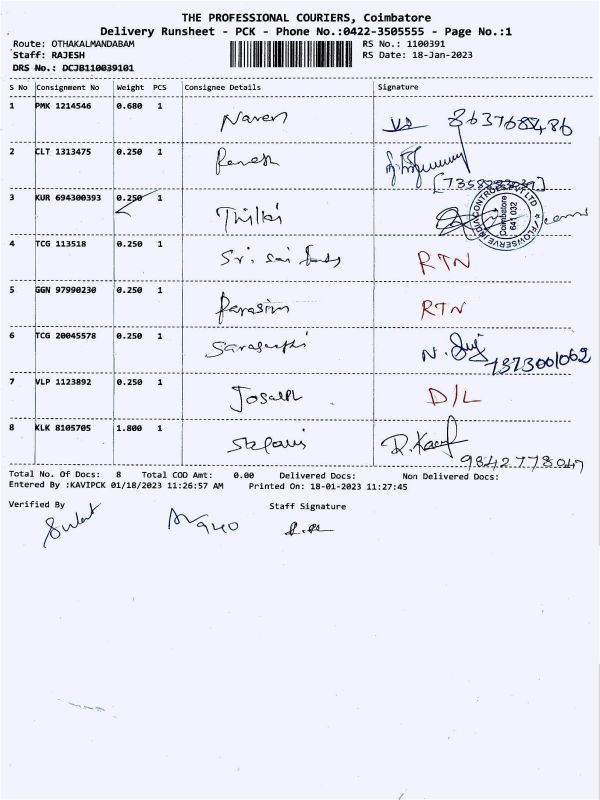 THE PROFESSIONAL COURIERS, Coimbatore
Delivery Runsheet - PCK - Phone No.:0422-3505555 - Page No.:1
Route: OTHAKALMANDABAM RS No.: 1100391
Staff: RAJESH RS Date: 18-Jan-2023
DRS No.: DCJB110039101
S No Consignment No Weight PCS Consignee Details Signature
1 PMK 1214546 0.680 1 Naren 8637684486
2 CLT 1313475 0.250 1 Ramesh
3 KUR 694300393 0.250 1 Thilki
FLOWSERVE INDIA CONTROLS PVT LTD
Coimbatore
641 032
4 TCG 113518 0.250 1 Sri Sai RTN
5 GGN 97990230 0.250 1 RTN
6 TCG 20045578 0.250 1 N. 7373001062
7 VLP 1123892 0.250 1 Joseph D/L
8 KLK 8105705 1.800 1 9842778047
Total No. Of Docs: 8 Total COD Amt: 0.00 Delivered Docs: Non Delivered Docs:
Entered By :KAVIPCK 01/18/2023 11:26:57 AM Printed On: 18-01-2023 11:27:45
Verified By Staff Signature